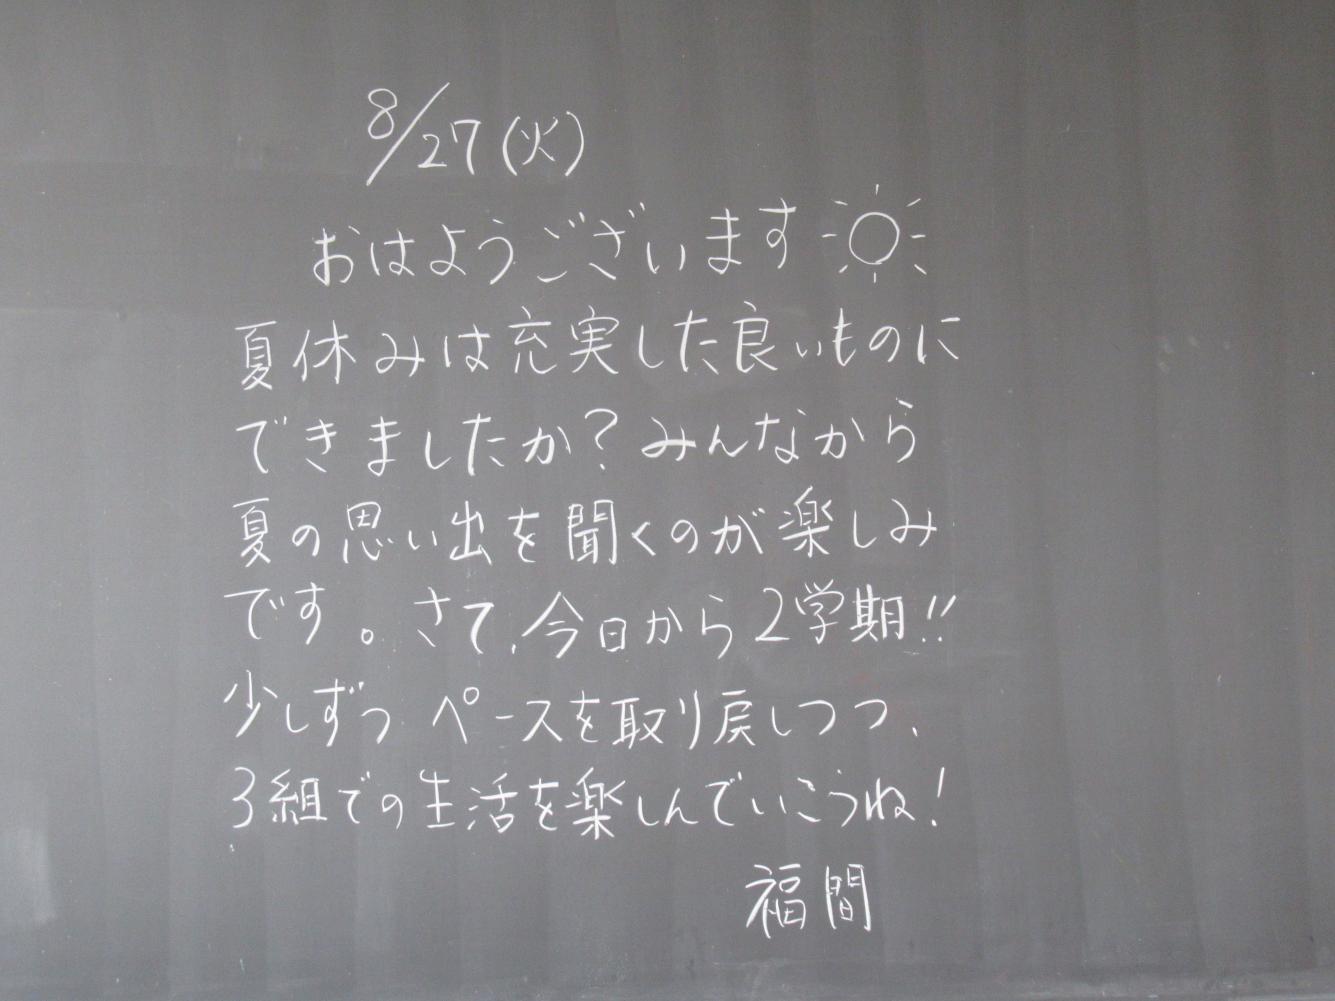 8/27(火)
おはようございます
夏休みは充実した良いものに
できましたか?みんなから
夏の思い出を聞くのが楽しみ
です。さて、今日から2学期!!
少しずつペースを取り戻しつつ、
3組での生活を楽しんでいこうね!
福間